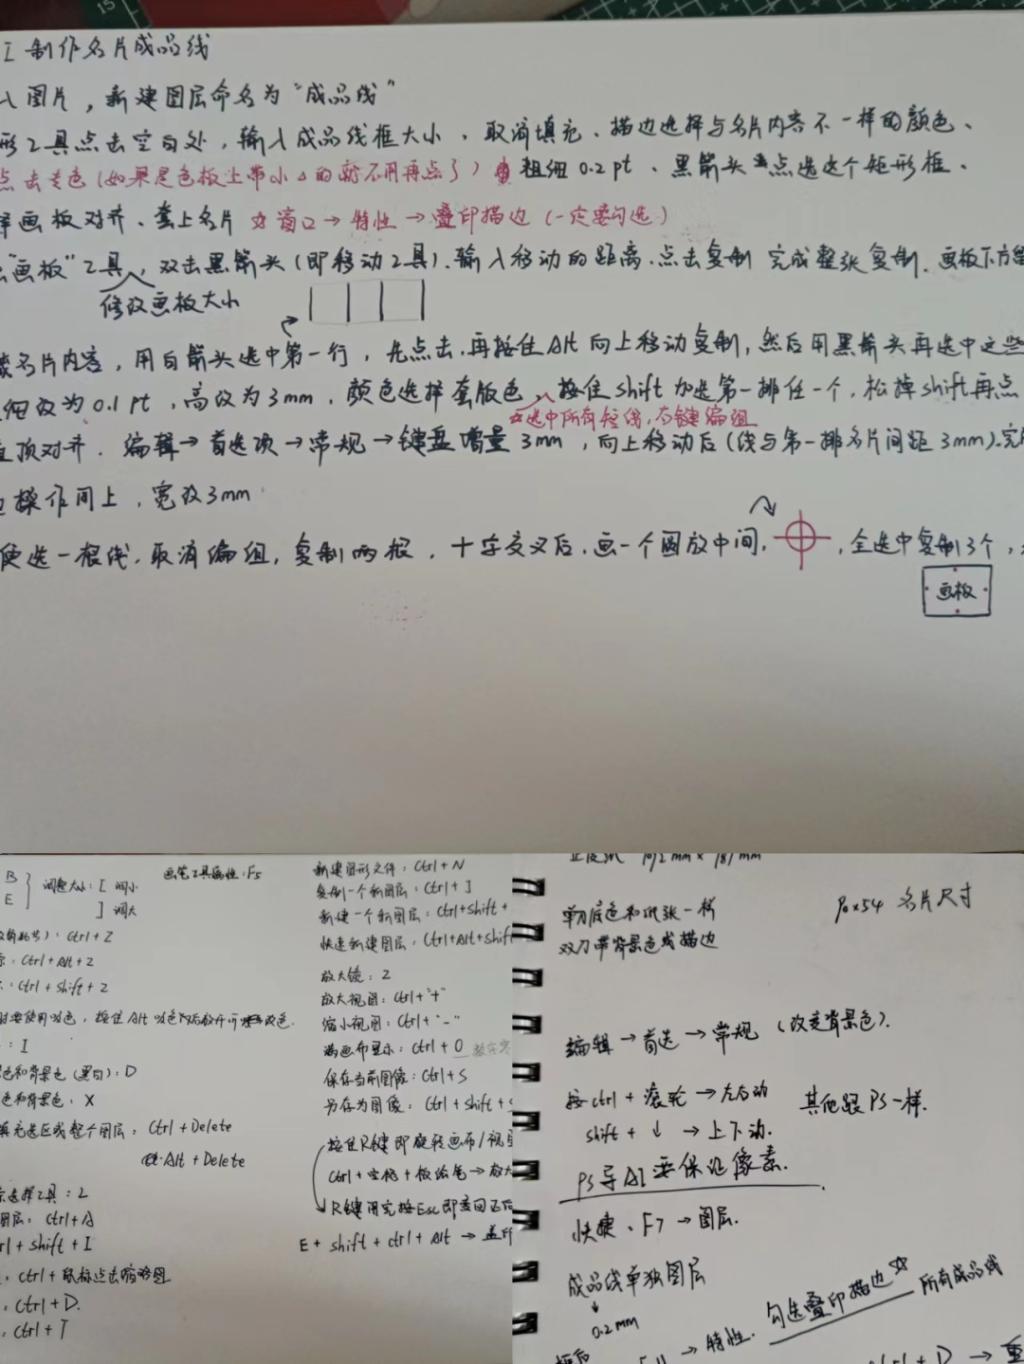 I 制作名片成品线
入图片，新建图层命名为“成品线”
形工具点击空白处，输入成品线框大小、取消填充、描边选择与名片内容不一样的颜色、
点击专色(如果是色板上带小△的就不用再点了) 粗细0.2pt、黑箭头点选这个矩形框、
画板对齐、套上名片 ☆窗口→特性→叠印描边(一定要勾选)
“画板”工具，双击黑箭头(即移动工具)、输入移动的距离、点击复制 完成整张复制、画板下方
修改画板大小
名片内容，用白箭头选中第一行，先点击，再按住Alt向上移动复制，然后用黑箭头再选中这些
细改为0.1pt，高改为3mm，颜色选择套版色，按住shift加选第一排任一个，松掉shift再点
☆选中所有短线，右键编组
顶对齐、编辑→首选项→常规→键盘增量3mm，向上移动后(线与第一排名片间距3mm)
操作同上，宽改3mm
使选一根线，取消编组，复制两根，十字交叉后，画一个圆放中间，全选中复制3个，
画板
B
E
调整大小：[ 调小
] 调大
画笔工具属性：F5
Ctrl+Z
Ctrl+Alt+Z
Ctrl+Shift+Z
：I
色和背景色(黑白)：D
色和背景色：X
填充选区或整个图层：Ctrl+Delete
Alt+Delete
选择工具：Z
图层：Ctrl+A
+Shift+I
，Ctrl+鼠标点击缩略图
，Ctrl+D.
，Ctrl+T
新建图形文件：Ctrl+N
复制一个新图层：Ctrl+J
新建一个新图层：Ctrl+Shift+
快速新建图层：Ctrl+Alt+Shift
放大镜：Z
放大视图：Ctrl+“+”
缩小视图：Ctrl+“-”
满画布显示：Ctrl+0
保存当前图像：Ctrl+S
另存为图像：Ctrl+Shift+S
按住R键即旋转画布/视
Ctrl+空格+
R键用完按Esc即
E+shift+ctrl+Alt→盖印
单刀底色和纸张一样
双刀带背景色或描边
90×54 名片尺寸
编辑→首选→常规(改变背景色).
按ctrl+滚轮→左右动
shift+↓→上下动.
其他跟PS一样.
PS导AI要保证像素.
快捷、F7→图层.
成品线单独图层
0.2mm
→特性.勾选叠印描边☆所有成品线
+D→重